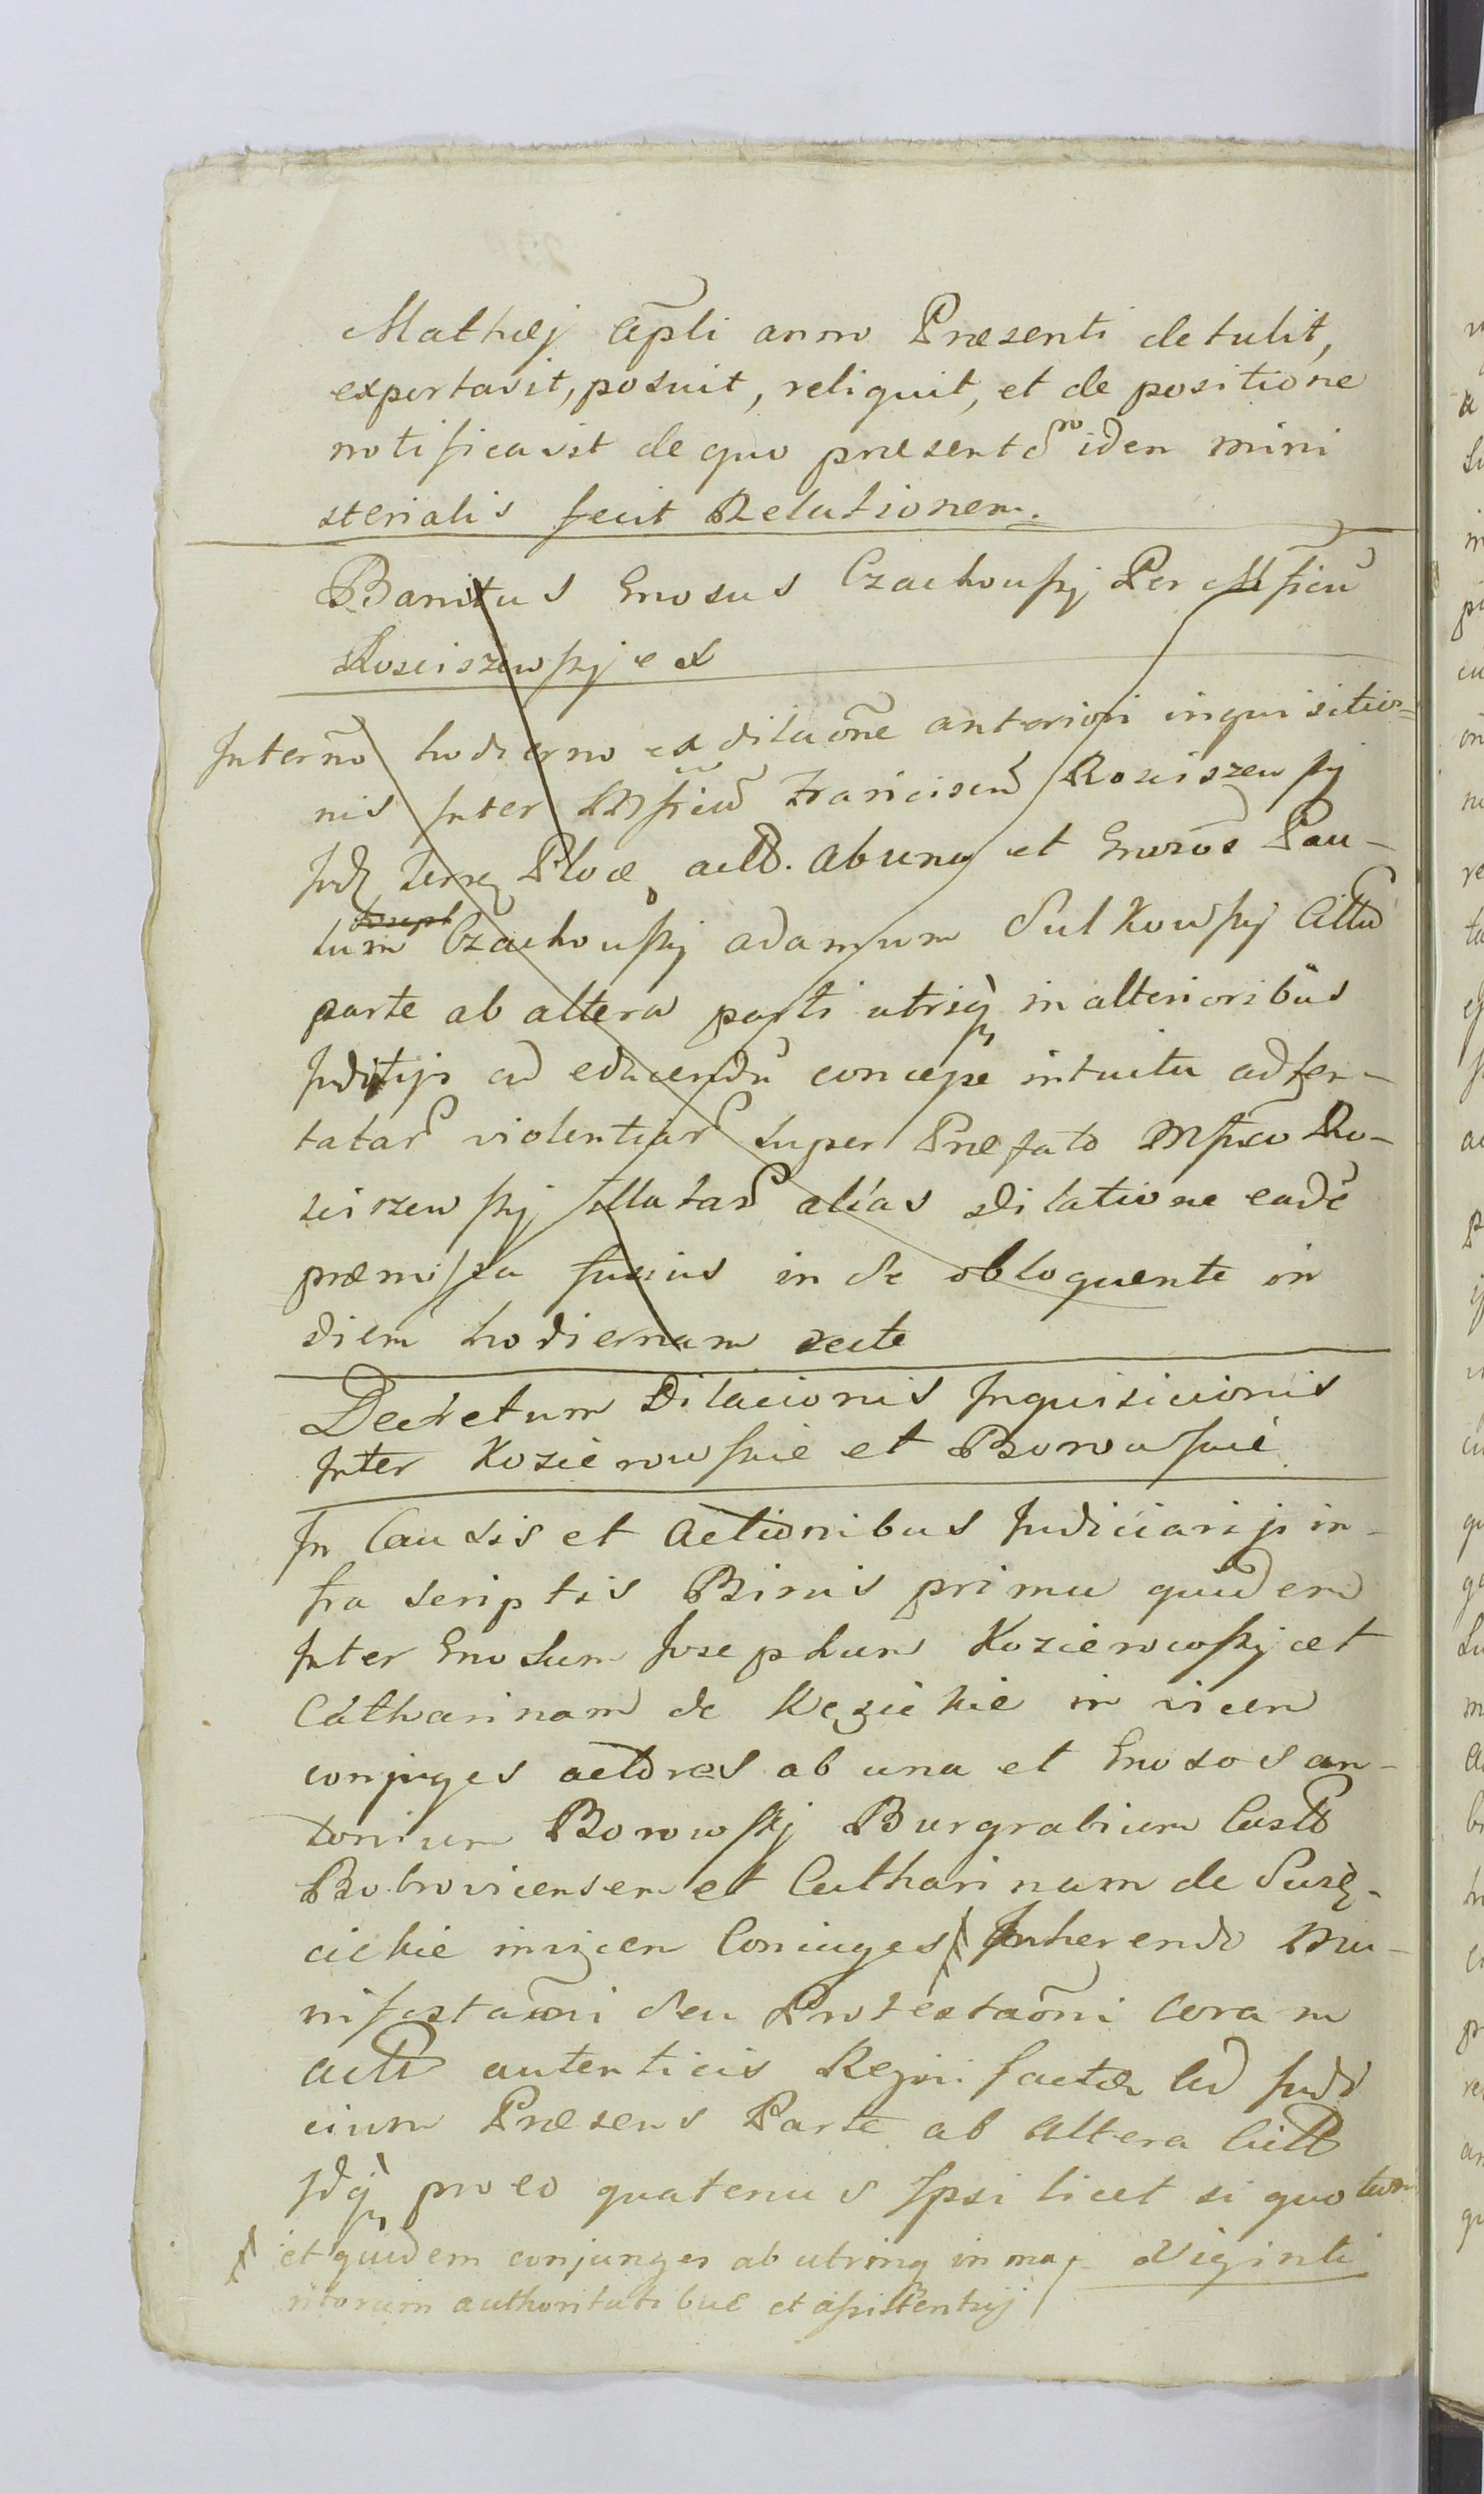 Mathæj Apli anno Præsenti detulit,
exportavit, posuit, reliquit, et de positione
notificavit de quo præsent idem mini
sterialis fecit Relationem.
Banitus Gnosus Czachowskj Per Mficu
Kosciszewskj ex
In termo hodierno ex dilaone anteriori inquisitio=
nis Inter Mficu Franciscu Rosciszewskj
Jud Terræ Ploc act. ab una et Gnosos Pau-
lum Czachowskj Adamum Sulkowskj Citt
parte ab altera parti utriq in alterioribus
Juditijs ad educendu concepse intuitu adten-
tatar violentiar super Præfato Mfico Ro-
sciszewskj illatar alias dilatione eade
præmissa fusius in se obloquente in
diem hodiernam recte
Decretum Dilacionis Inquisicionis
Inter Kozierowskie et Borowskie
In Causis et Actionibus Judiciarijs in-
fra scriptis Binis primu quidem
Inter Gnosum Josephum Kozierowskj et
Catharinam de Kęsickie in vicem
conjuges actores ab una et Gnosos An-
tonium Borowskj Burgrabium Cast
Bobrovicensem et Catharinam de Suzę-
cickie invicem Coniuges Inherendo Ma-
nifestaoni seu Protestaoni coram
actis autenticis Regni factæ ad Judi
cium Præsens Parte ab Altera Citt
Idq pro eo quatenus Ipsi licet si quotum
et quidem conjunges ab utrinq in ma- Viginti
ritorum authoritatibus et assistentijs